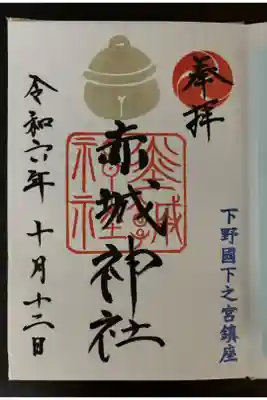 奉拝
下野國下之宮鎮座
赤城神社
赤城神社
令和六年十月十二日